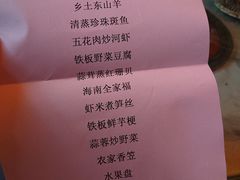 乡土东山羊
清蒸珍珠斑鱼
五花肉炒河虾
铁板野菜豆腐
蒜茸蒸红珊贝
海南全家福
虾米煮笋丝
铁板鲜芋梗
蒜蓉炒野菜
农家香笠
水果盘